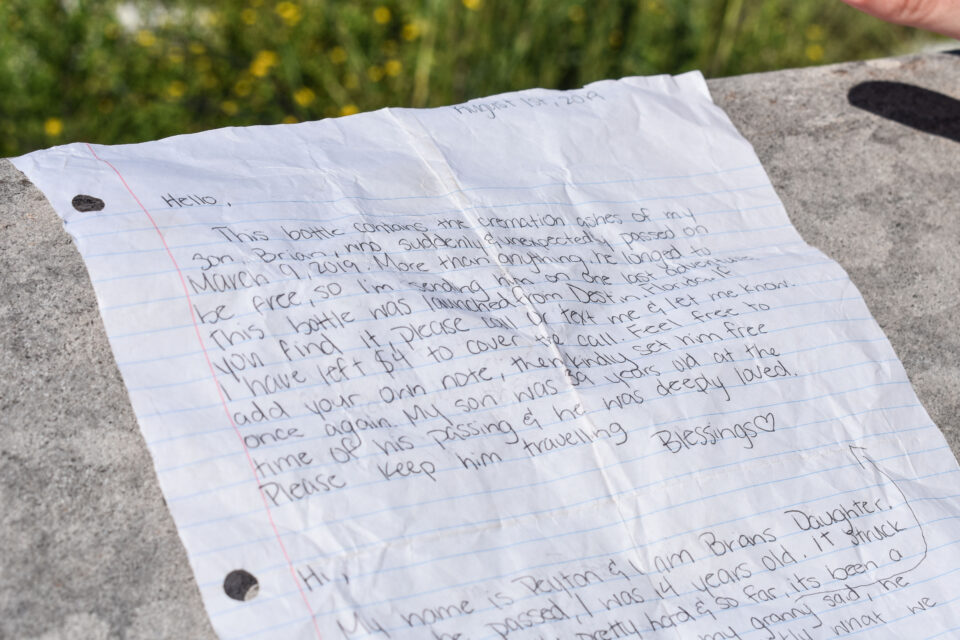 August 1st, 2019
Hello,
This bottle contains the cremation ashes of my
son, Brian, who suddenly & unexpectedly passed on
March 9, 2019. More than anything, he longed to
be free, so I'm sending him on one last adventure.
This bottle was launched from Destin, Florida. If
you find it, please call or text me & let me know.
I have left $4 to cover the call. Feel free to
add your own note, then kindly set him free
once again. My son was 39 years old at the
time of his passing & he was deeply loved.
Please keep him travelling
Blessings♡
Hi,
My name is Peyton & I am Brians Daughter.
he passed, I was 14 years old. It struck
pretty hard & so far, its been a
my granny said, he
what we